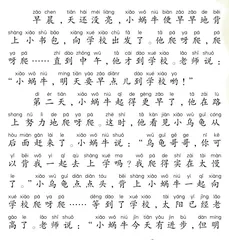 zǎo chen tiān hái méi liàng xiǎo wō niú biàn zǎo zǎo de bēi
早晨,天还没亮,小蜗牛便早早地背
shàng xiǎo shū bāo xiàng xué xiào chū fā le tā pá ya pá pá
上小书包,向学校出发了。他爬呀爬,爬
ya pá zhí dào zhōng wǔ tā cái dào xué xiào lǎo shī shuō
呀爬……直到中午,他才到学校。老师说:
xiǎo wō niú míng tiān yào zǎo diǎnr dào xué xiào yo
“小蜗牛,明天要早点儿到学校哟!”
dì èr tiān xiǎo wō niú qǐ de gèng zǎo le tā zài lù
第二天,小蜗牛起得更早了,他在路
shàng nǔ lì de pá ya pá zhè shí tā kàn jiàn xiǎo wū guī cóng
上努力地爬呀爬。这时,他看见小乌龟从
hòu miàn gǎn lái le xiǎo wō niú shuō wū guī gē ge nǐ kě
后面赶来了。小蜗牛说:“乌龟哥哥,你可
yǐ bēi wǒ yì qǐ qù shàng xué ma wǒ pá de shí zài tài màn
以背我一起去上学吗?我爬得实在太慢
le wū guī diǎn diǎn tóu bēi shàng xiǎo wō niú yì qǐ xiàng
了。”乌龟点点头,背上小蜗牛一起向
xué xiào pá ya pá děng dào le xué xiào tài yáng yǐ jīng lǎo
学校爬呀爬……等到了学校,太阳已经老
gāo le lǎo shī shuō xiǎo wō niú jīn tiān yǒu jìn bù dàn míng
高了。老师说:“小蜗牛今天有进步,但明